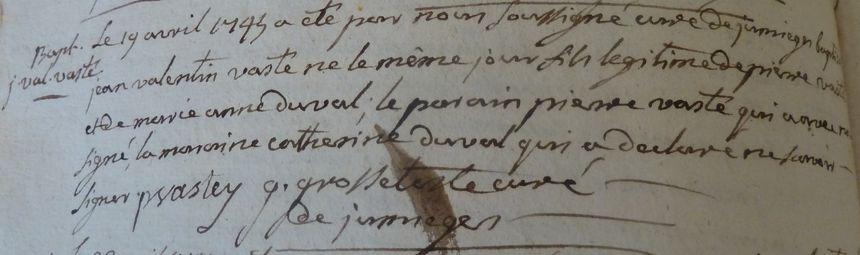 Bapt. Le 19 avril 1745 a eté par nous soussigné curé de jumieges baptisé
j. val. vasté jean valentin vasté ne le même jour fils legitime de pierre vasté
et de marie anne duval. le parain pierre vasté qui a avec nous
signé, la maraine catherine duval qui a declaré ne savoir
signer pvastey g. grosseteste curé
de jumieges